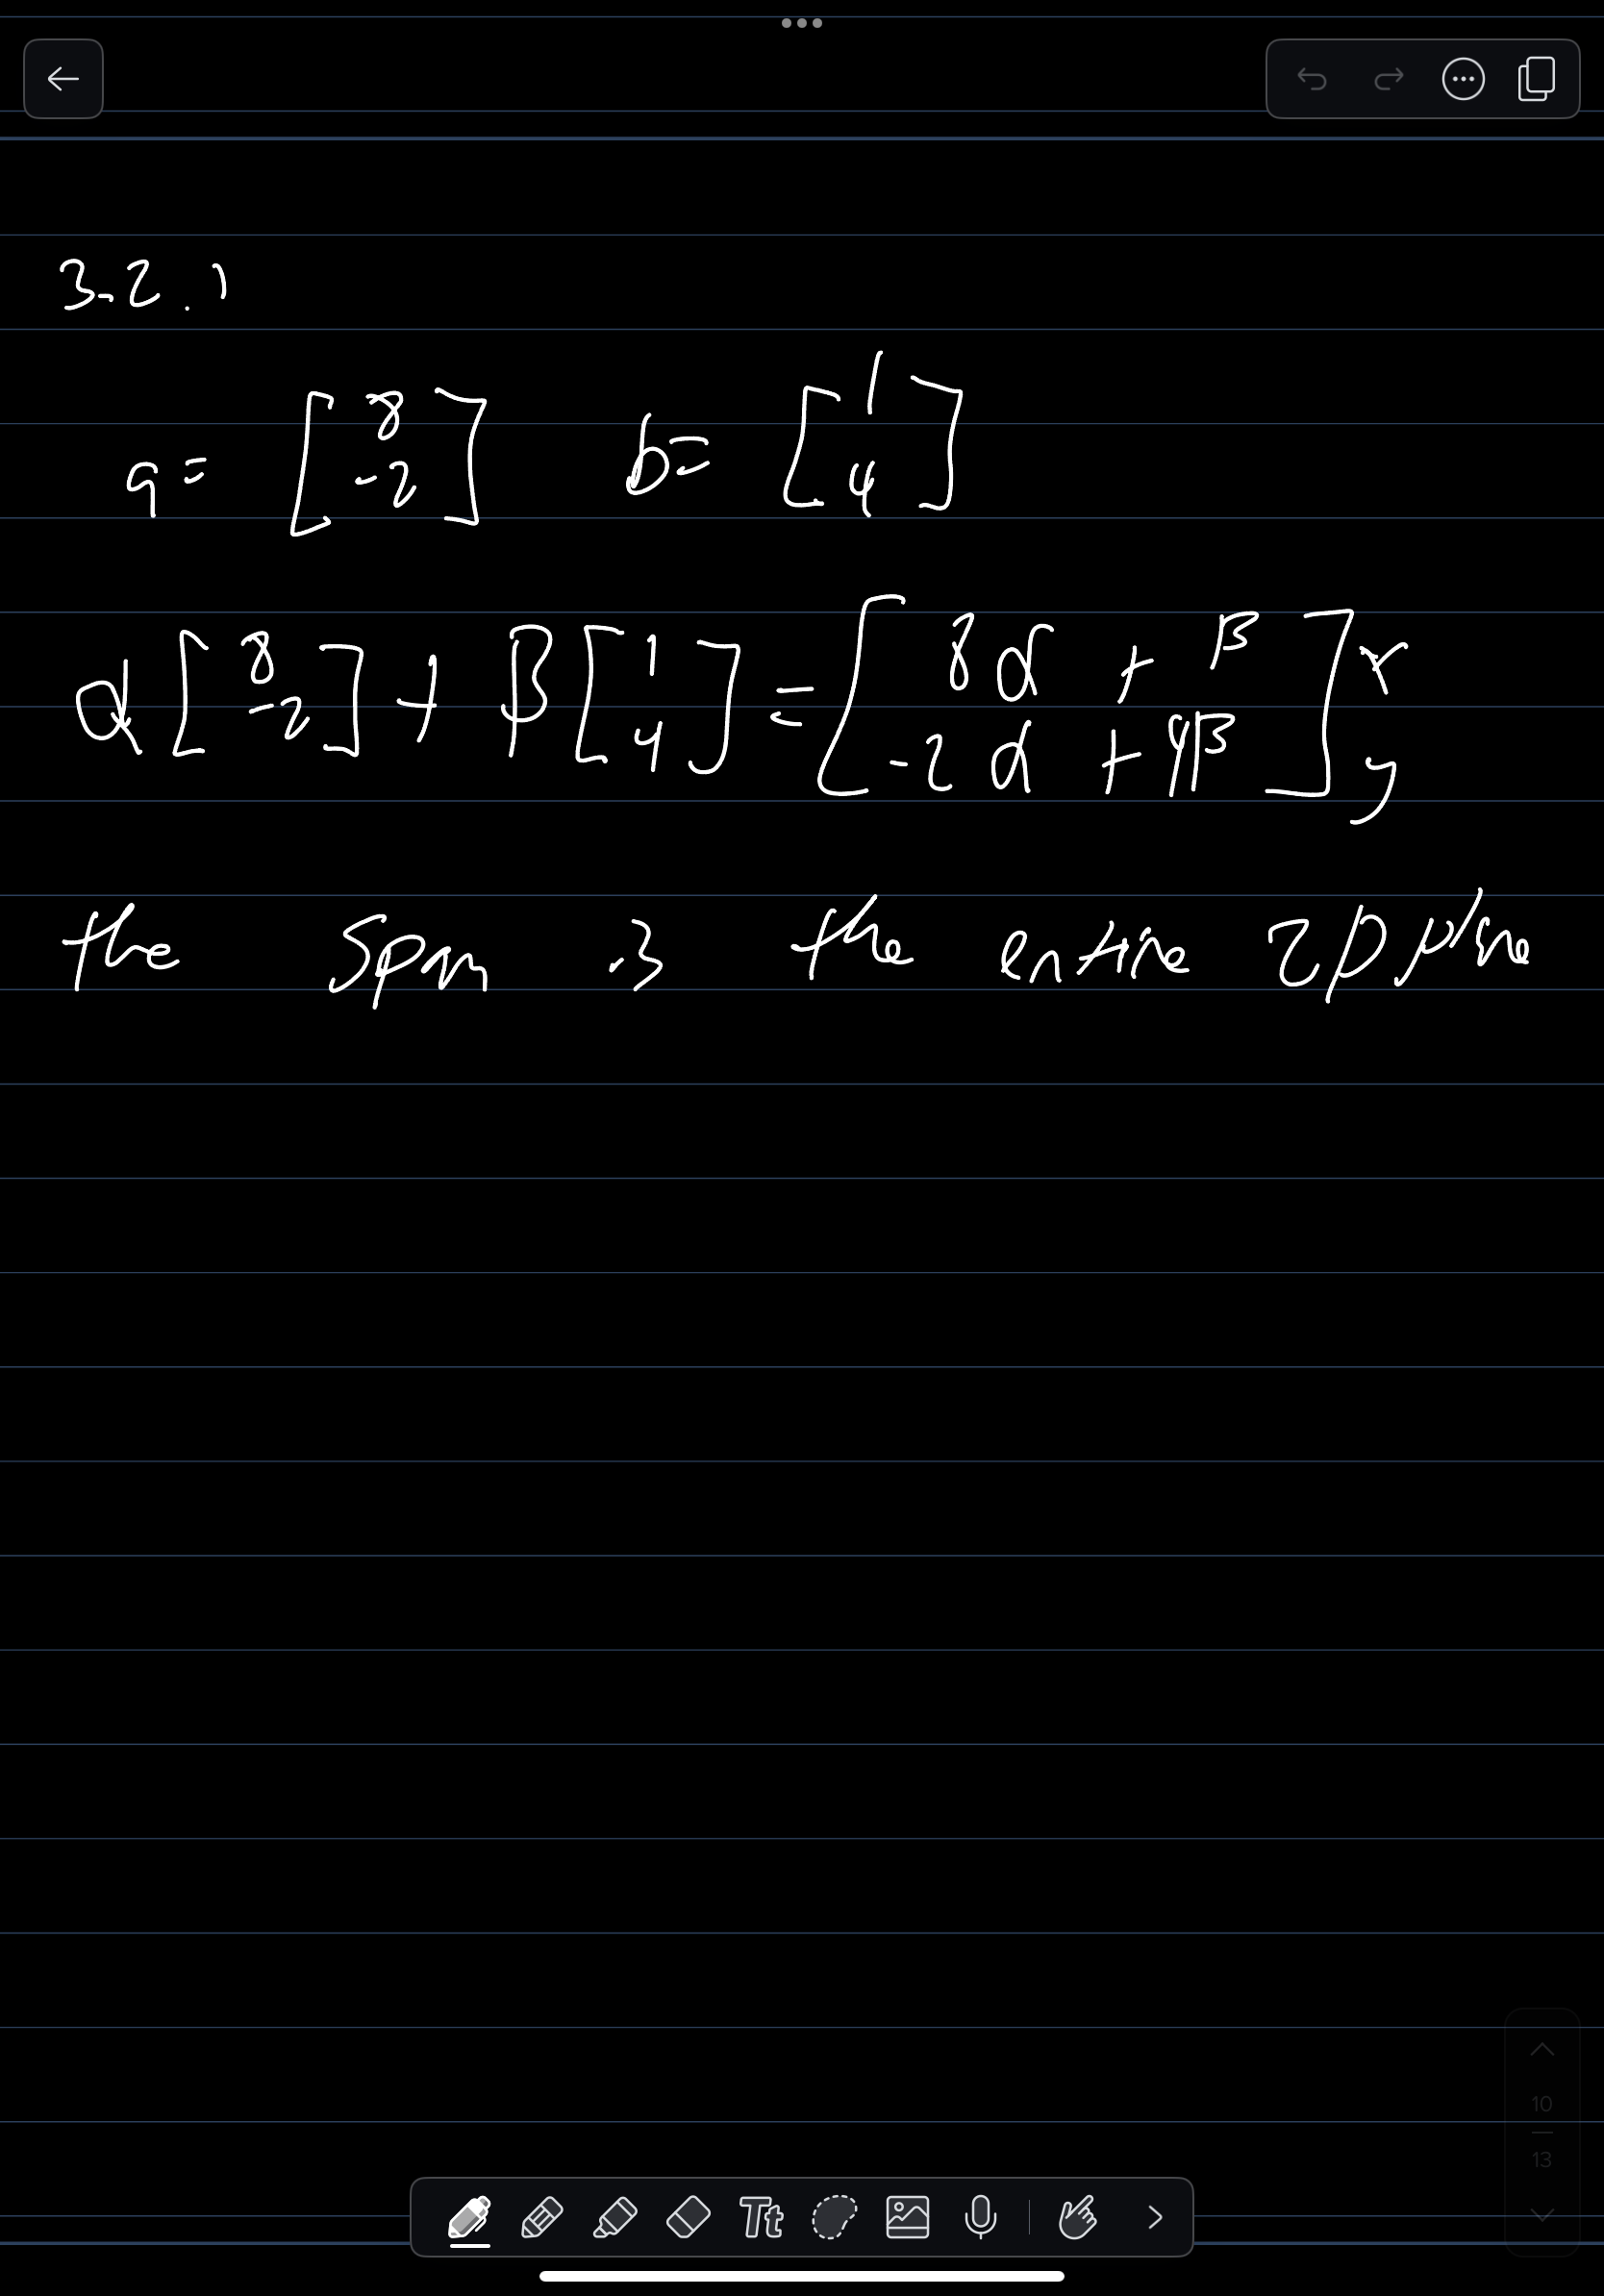 3.2.1
a = [8 -2] b = [1 4]
α[8 -2] + β[1 4] = [8α + β -2α + 4β] x y
the span is the entire 2D plane
10
13
Tt